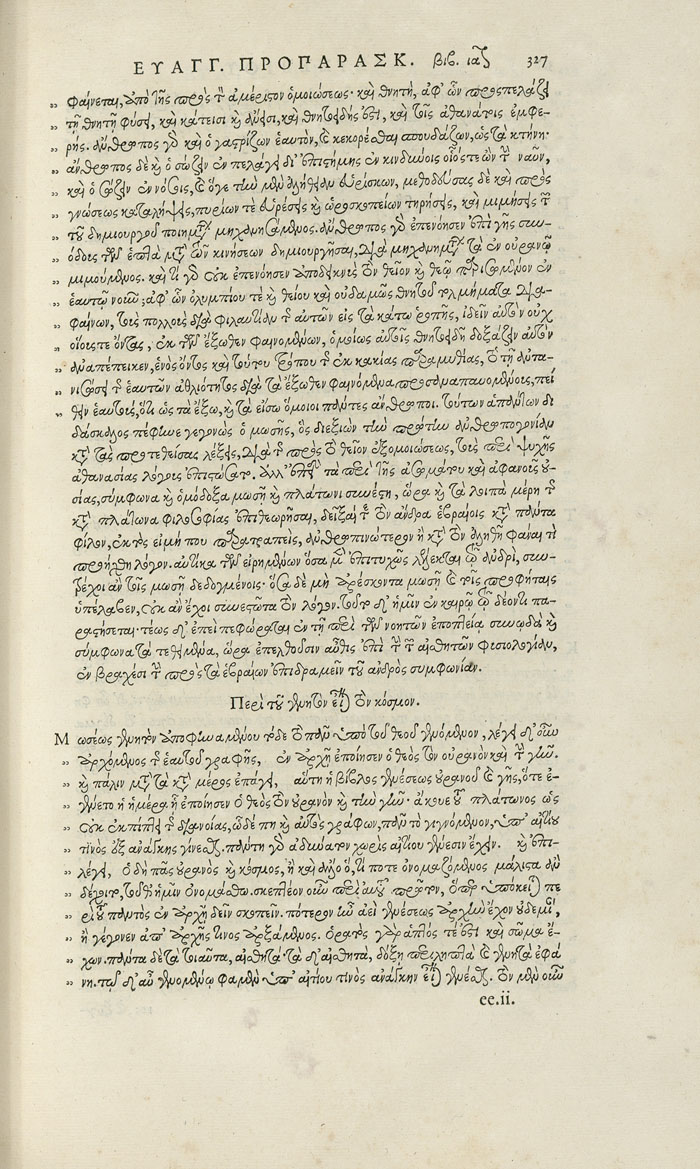 ΕΥΑΓΓ. ΠΡΟΠΑΡΑΣΚ. βιβ. ια 327
φαίνεται, ἀπὸ τῆς πρὸς τὸ ἀμέριστον ὁμοιώσεως· καὶ θνητὴ, ἀφ' ὧν προςπελάζει
τῇ θνητῇ φύσει, καὶ κάτεισι καὶ δύεται, καὶ θνητοειδής ἐστι, καὶ τοῖς ἀθανάτοις ἐμφε-
ρής. ἄνθρωπος γὸ καὶ ὁ γαστρίζων ἑαυτὸν, καὶ κεκορέσθαι σπουδάζων, ὡς τὰ κτήνη·
ἄνθρωπος δὲ καὶ ὁ σώζειν ἐν πελάγει δι' ἐπιστήμης ἐν κινδύνοις οἷός τε ὢν τὴν ναῦν,
καὶ ὁ σώζειν ἐν νόσοις, καὶ ὅγε τὴν μὲν ἀλήθειαν εὑρίσκων, μεθοδεύσας δὲ καὶ πρὸς
γνώσεως καταλήψεις, πυρίων τε εὑρέσεις καὶ ὡροσκοπείων τηρήσεις, καὶ μιμήσεις τῶν
τοῦ δημιουργοῦ ποιημάτων μηχανησάμενος. ἄνθρωπος γὸ ἐπενόησεν ἐπὶ γῆς συν-
όδους τῶν ἑπτὰ μετὰ τῶν κινήσεων δημιουργῆσαι, διὰ μηχανημάτων τὰ ἐν οὐρανῷ
μιμούμενος. καὶ τί γὸ οὐκ ἐπενόησεν ἀποδεικνὺς τὸν θεῖον καὶ θεῷ παρισούμενον ἐν
ἑαυτῷ νοῦν; ἀφ' ὧν ὀλυμπίου τε καὶ θείου καὶ οὐδαμῶς θνητοῦ τολμήματα δια-
φαίνων, τοὺς πολλοὺς διὰ φιλαυτίαν τῆς αὐτῶν εἰς τὰ κάτω ῥοπῆς, ἰδεῖν αὐτὸν οὐχ
οἵους τε ὄντας, ἐκ τῶν ἔξωθεν φαινομένων, ὁμοίως αὐτοῖς θνητοειδῆ δοξάζειν αὐτὸν
ἀναπέπεικεν, ἑνὸς ὄντος καὶ τούτου τρόπου τῆς ἐκ κακίας παραμυθίας, τὸ τῇ ἀντα-
νισώσει τῆς ἑαυτῶν ἀθλιότητος διὰ τὰ ἔξωθεν φαινόμενα προσαναπαυομένους, πεί
θειν ἑαυτοὺς, ὅτι ὡς τὰ ἔξω, καὶ τὰ εἴσω ὅμοιοι πάντες ἄνθρωποι. τούτων ἁπάντων δι
δάσκαλος πέφηνε γεγονὼς ὁ μωσῆς, ὃς διεξιὼν τὴν πρώτην ἀνθρωπογονίαν
κατὰ τὰς προτεθείσας λέξεις, διὰ τῆς πρὸς τὸ θεῖον ἐξομοιώσεως, τοὺς περὶ ψυχῆς
ἀθανασίας λόγους ἐπιστώσατο. ἀλλ' ἐπεὶ τὰ περὶ τῆς ἀσωμάτου καὶ ἀφανοῦς οὐ-
σίας, σύμφωνα καὶ ὁμόδοξα μωσῇ καὶ πλάτωνι συνέστη, ὥρα καὶ τὰ λοιπὰ μέρη τῆς
κατὰ πλάτωνα φιλοσοφίας ἐπιθεωρῆσαι, δεῖξαί τε τὸν ἄνδρα ἑβραίοις κατὰ πάντα
φίλον, ἐκτὸς εἰμή που παρατραπεὶς, ἀνθρωπινώτερον ἢ κατὰ τὸν ἀληθῆ φάναι τι
προήχθη λόγον. αὐτίκα τῶν εἰρημένων ὅσα μὲν ἐπιτυχῶς λέλεκται τῷ ἀνδρὶ, συν-
τρέχοι ἂν τοῖς μωσῇ δεδογμένοις· ὅσα δὲ μὴ ἀρέσκοντα μωσῇ καὶ τοῖς προφήταις
ὑπέλαβεν, οὐκ ἂν ἔχοι συνεστῶτα τὸν λόγον. τοῦτο δ' ἡμῖν ἐν καιρῷ τῷ δέοντι πα-
ραστήσεται· τέως δ' ἐπεὶ πεφώραται ἐν τῇ περὶ τῶν νοητῶν ἐποπτείᾳ συνῳδὰ καὶ
σύμφωνα τεθειμένα, ὥρα ἐπελθοῦσιν αὖθις ἐπὶ τὴν τῶν αἰσθητῶν φυσιολογίαν,
ἐν βραχέσι τὴν πρὸς τὰ ἑβραίων ἐπιδραμεῖν τοῦ ἀνδρὸς συμφωνίαν.
Περὶ τοῦ γενητὸν εἶναι τὸν κόσμον.
Μωσέως γενητὸν ἀποφηναμένου τόδε τὸ πᾶν ὑπὸ τοῦ θεοῦ γενόμενον, λέγει δ' οὖν
ἀρχόμενος τῆς ἑαυτοῦ γραφῆς, ἐν ἀρχῇ ἐποίησεν ὁ θεὸς τὸν οὐρανὸν καὶ τὴν γῆν.
καὶ πάλιν μετὰ τὰ κατὰ μέρος ἐπάγει, αὕτη ἡ βίβλος γενέσεως οὐρανοῦ καὶ γῆς, ὅτε ἐ-
γένετο ᾗ ἡμέρᾳ ᾗ ἐποίησεν ὁ θεὸς τὸν οὐρανὸν καὶ τὴν γῆν· ἄκουε τοῦ πλάτωνος ὡς
οὐκ ἐκπίπτει τῆς διανοίας, ὧδέ πη καὶ αὐτὸς γράφων, πᾶν τὸ γιγνόμενον, ὑπ' αἰτίου
τινὸς ἐξ ἀνάγκης γίνεσθαι. παντὶ γὸ ἀδύνατον χωρὶς αἰτίου γένεσιν ἔχειν. καὶ ἐπι-
λέγει, ὁ δὴ πᾶς οὐρανὸς καὶ κόσμος, ἢ καὶ ἄλλο ὅ, τι ποτε ὀνομαζόμενος μάλιστα ἂν
δέχοιτο, τοῦθ' ἡμῖν ὀνομάσθω. σκεπτέον οὖν περὶ αὐτοῦ πρῶτον, ὅπερ ὑπόκειται πε
ρὶ τοῦ παντὸς ἐν ἀρχῇ δεῖν σκοπεῖν. πότερον ἦν ἀεὶ γενέσεως ἀρχὴν ἔχον οὐδεμίαν,
ἢ γέγονεν ἀπ' ἀρχῆς τινος ἀρξάμενος. ὁρατὸς γὰρ ἁπτός τε ἐστι καὶ σῶμα ἔ-
χων. πάντα δὲ τὰ τοιαῦτα, αἰσθητὰ· τὰ δ' αἰσθητὰ, δόξῃ περιληπτὰ καὶ γενητὰ ἐφά
νη. τῷ δ' αὖ γενομένῳ φαμὲν ὑπ' αἰτίου τινὸς ἀνάγκην εἶναι γενέσθαι. τὸν μὲν οὖν
ee.ii.